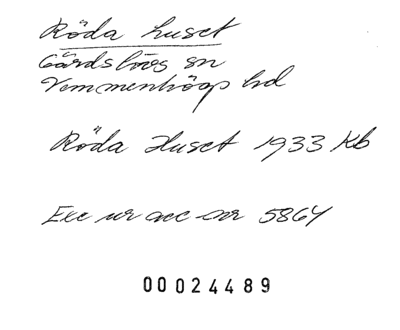 Röda huset
Gärdslövs sn
Vemmenhögs hd
Röda Huset 1933 Kb
Exc ur acc nr 5864
00024489